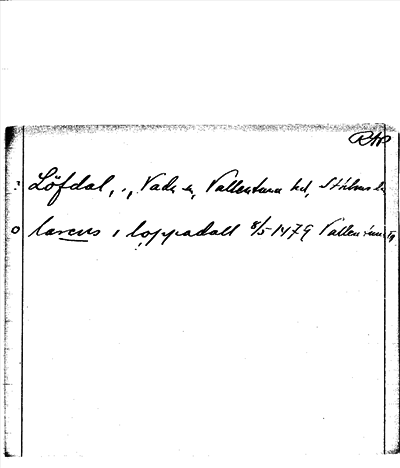 RAP
Löfdal, ., Vada sn, Vallentuna hd, Sthlms län
larens i loppadall 8/5 1479 Vallentuna tg